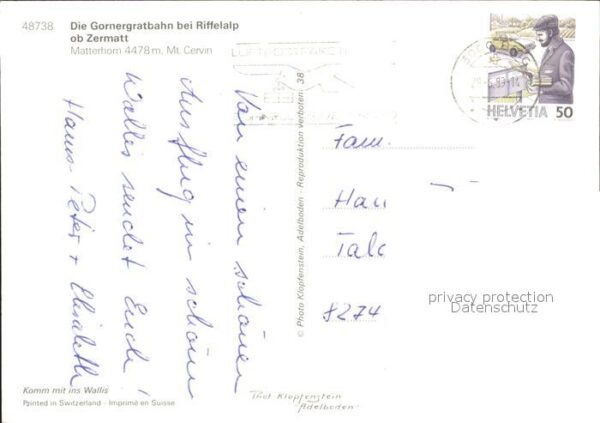 48738
Die Gornergratbahn bei Riffelalp
ob Zermatt
Matterhorn 4478 m, Mt. Cervin
Von einem schönen
Ausflug im schönen
Wallis sendet Euch!
Hans-Peter + Elisabeth
© Photo Klopfenstein, Adelboden - Reproduktion verboten 38
HELVETIA 50
Fam.
Han
Talc
8274
privacy protection
Datenschutz
Komm mit ins Wallis
Printed in Switzerland - Imprimé en Suisse
Phot Klopfenstein
"Adelboden"